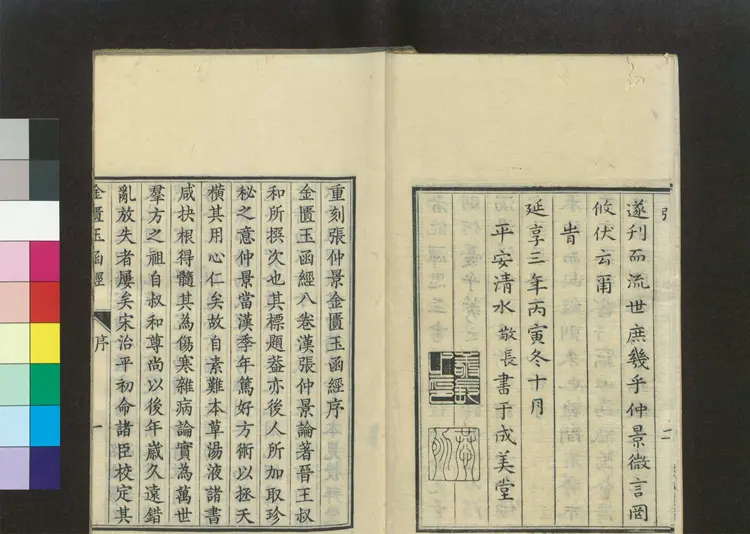 遂刊而流世庶幾乎仲景微言罔
攸伏云爾
旹
延享三年丙寅冬十月
平安清水敬長書于成美堂
重刻張仲景金匱玉函經序
金匱玉函經八卷漢張仲景論著晉王叔
和所撰次也其標題葢亦後人所加取珍
秘之意仲景當漢季年篤好方術以拯夭
橫其用心仁矣故自素難本草湯液諸書
咸抉根得髓其為傷寒雜病論實為萬世
羣方之祖自叔和尊尚以後年歲久遠錯
亂放失者屢矣宋治平初命諸臣校定其
金匱玉函經
序
一